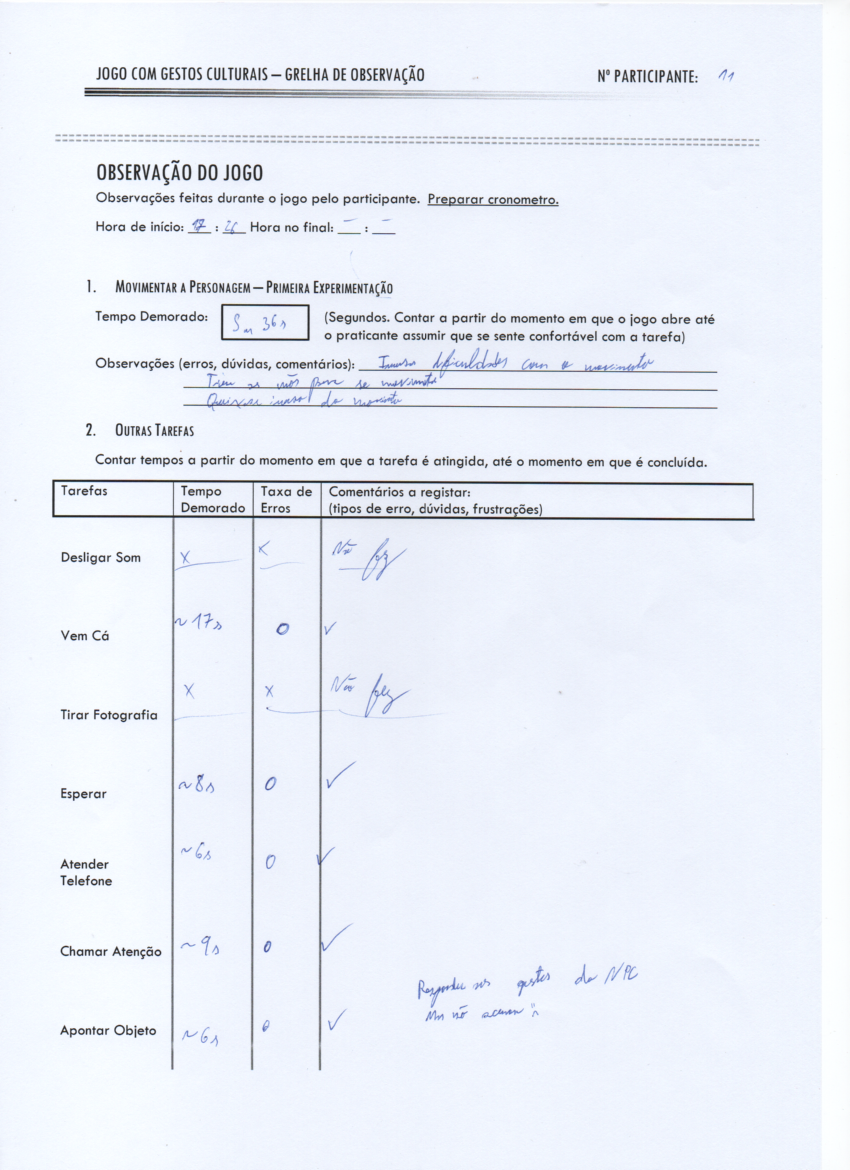 JOGO COM GESTOS CULTURAIS – GRELHA DE OBSERVAÇÃO Nº PARTICIPANTE: 11
OBSERVAÇÃO DO JOGO
Observações feitas durante o jogo pelo participante. Preparar cronometro.
Hora de início: 17 : 26 Hora no final: – : –
1. MOVIMENTAR A PERSONAGEM – PRIMEIRA EXPERIMENTAÇÃO
Tempo Demorado: 5m 36s (Segundos. Contar a partir do momento em que o jogo abre até
o praticante assumir que se sente confortável com a tarefa)
Observações (erros, dúvidas, comentários): Imensa dificuldades com o movimento
as mãos para se movimentar
do movimento
2. OUTRAS TAREFAS
Contar tempos a partir do momento em que a tarefa é atingida, até o momento em que é concluída.
Tarefas Tempo Demorado Taxa de Erros Comentários a registar:
(tipos de erro, dúvidas, frustrações)
Desligar Som X X Não fez
Vem Cá ~17s 0 ✓
Tirar Fotografia X X Não fez
Esperar ~8s 0 ✓
Atender Telefone ~6s 0 ✓
Chamar Atenção ~9s 0 ✓
Respondeu aos gestos do NPC
Mas não
Apontar Objeto ~6s 0 ✓